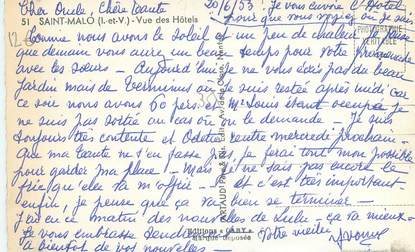 Cher Oncle, Chère Tante 20/6/53. Je vous envoie l'Hotel
51 SAINT-MALO (I.-et-V.) - Vue des Hôtels
pour que vous voyiez où je suis
Comme nous avons le soleil et un peu de chaleur. Je pense
que demain vous aurez un beau temps pour votre promenade
avec les sœurs - Aujourd'hui je ne vous écris pas du beau
Jardin mais de Terminus où je suis restée après midi car
ce soir nous avons 60 pers. Mme Louis étant occupée je
ne suis pas sortie au cas où on le demande - Je suis
toujours très contente et Odette rentre mercredi prochain -
Que ma tante ne s'en fasse pas, je ferai tout mon possible
pour garder ma place - Mais je ne sais pas encore le
fric qu'elle va m'offrir - et c'est très important
enfin, je pense que ça va bien se terminer -
J'ai eu ce matin des nouvelles de Lulu - ça va mieux.
Je vous embrasse tendrement Votre vieille Yvonne
à bientôt de vos nouvelles -
ARTAUD Père & Fils, Édit. Nantes
Éditions "GABY"
Marque déposée